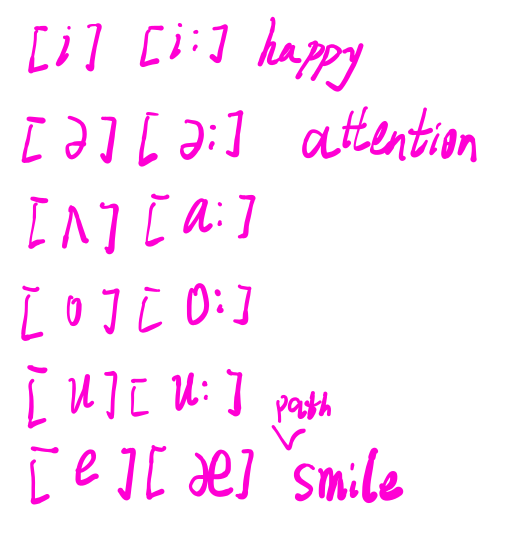 [i] [i:] happy
[ə] [ə:] attention
[ʌ] [a:]
[o] [o:]
[u] [u:]
path
[e] [æ] smile